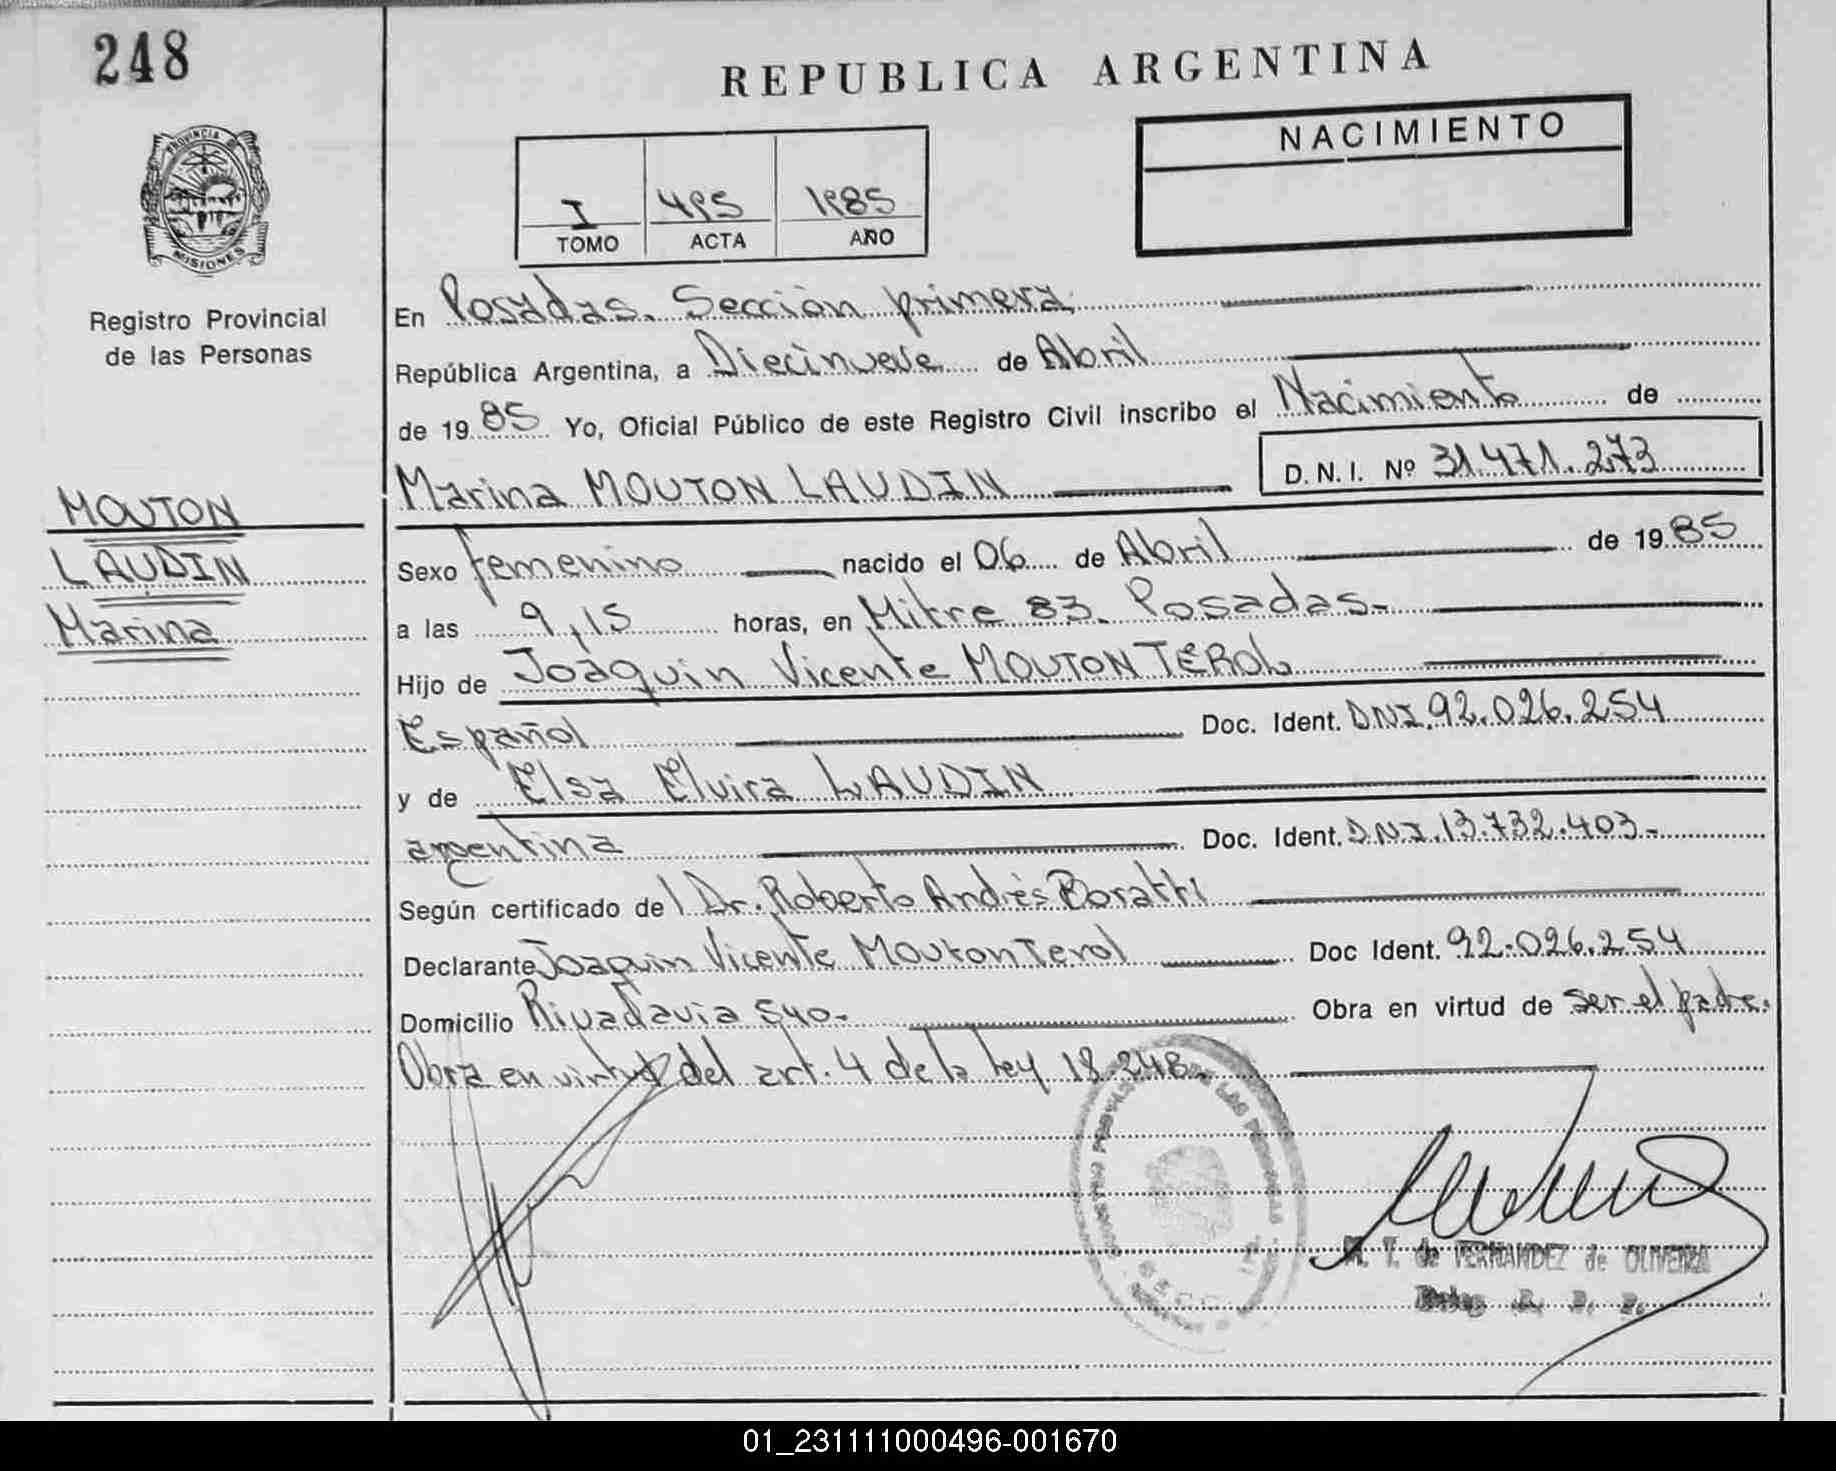 248
REPUBLICA ARGENTINA
NACIMIENTO
PROVINCIA DE
MISIONES
I 495 1985
TOMO ACTA AÑO
Registro Provincial
de las Personas
En Posadas. Sección primera.
República Argentina, a Diecinueve de Abril
de 1985 Yo, Oficial Público de este Registro Civil inscribo el Nacimiento de
Marina MOUTON LAUDIN D.N.I. Nº 31.471.273
MOUTON
LAUDIN
Marina
Sexo femenino nacido el 06 de Abril de 1985
a las 9,15 horas, en Mitre 83. Posadas.-
Hijo de Joaquin Vicente MOUTON TEROL
Español Doc. Ident. DNI.92.026.254
y de Elsa Elvira LAUDIN
argentina Doc. Ident. DNI.13.732.403.-
Según certificado del Dr. Roberto Andrés
Declarante Joaquin Vicente Mouton Terol Doc Ident. 92.026.254
Domicilio Rivadavia 540.- Obra en virtud de ser el padre.
Obra en virtud del art. 4 de la ley 18.248.-
M. T. de FERNANDEZ de OLIVEIRA
R. P. P.
01_231111000496-001670